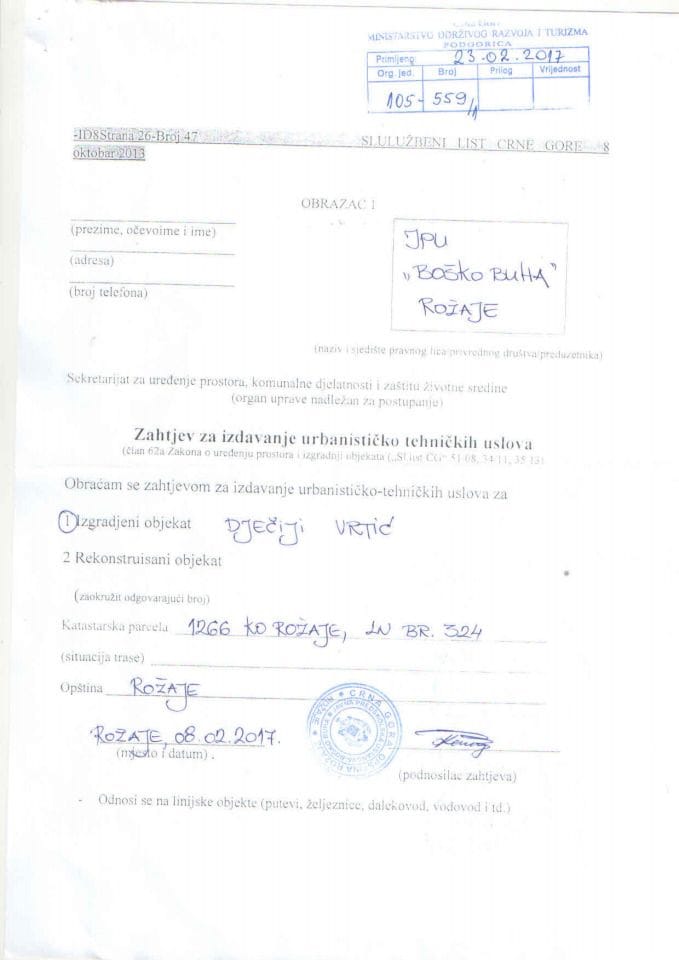 MINISTARSTVO ODRŽIVOG RAZVOJA I TURIZMA
PODGORICA
Primljeno: 23.02.2017
Org. jed. Broj Prilog Vrijednost
105- 559/1
-ID8Strana 26-Broj 47 SLULUŽBENI LIST CRNE GORE 8
oktobar 2013
OBRAZAC 1
(prezime, očevoime i ime)
(adresa)
(broj telefona)
JPU
„BOŠKO BUHA"
ROŽAJE
(naziv i sjedište pravnog lica/privrednog društva/preduzetnika)
Sekretarijat za uređenje prostora, komunalne djelatnosti i zaštitu životne sredine
(organ uprave nadležan za postupanje)
Zahtjev za izdavanje urbanističko tehničkih uslova
(član 62a Zakona o uređenju prostora i izgradnji objekata („Sl list CG" 51/08, 34/11, 35/13)
Obraćam se zahtjevom za izdavanje urbanističko-tehničkih uslova za
1 Izgradjeni objekat DJEČIJI VRTIĆ
2 Rekonstruisani objekat
(zaokružit odgovarajući broj)
Katastarska parcela 1266 KO ROŽAJE, LN BR. 324
(situacija trase)
Opština ROŽAJE
ROŽAJE, 08.02.2017.
(mjesto i datum) .
CRNA GORA
(podnosilac zahtjeva)
- Odnosi se na linijske objekte (putevi, željeznice, dalekovod, vodovod i td.)